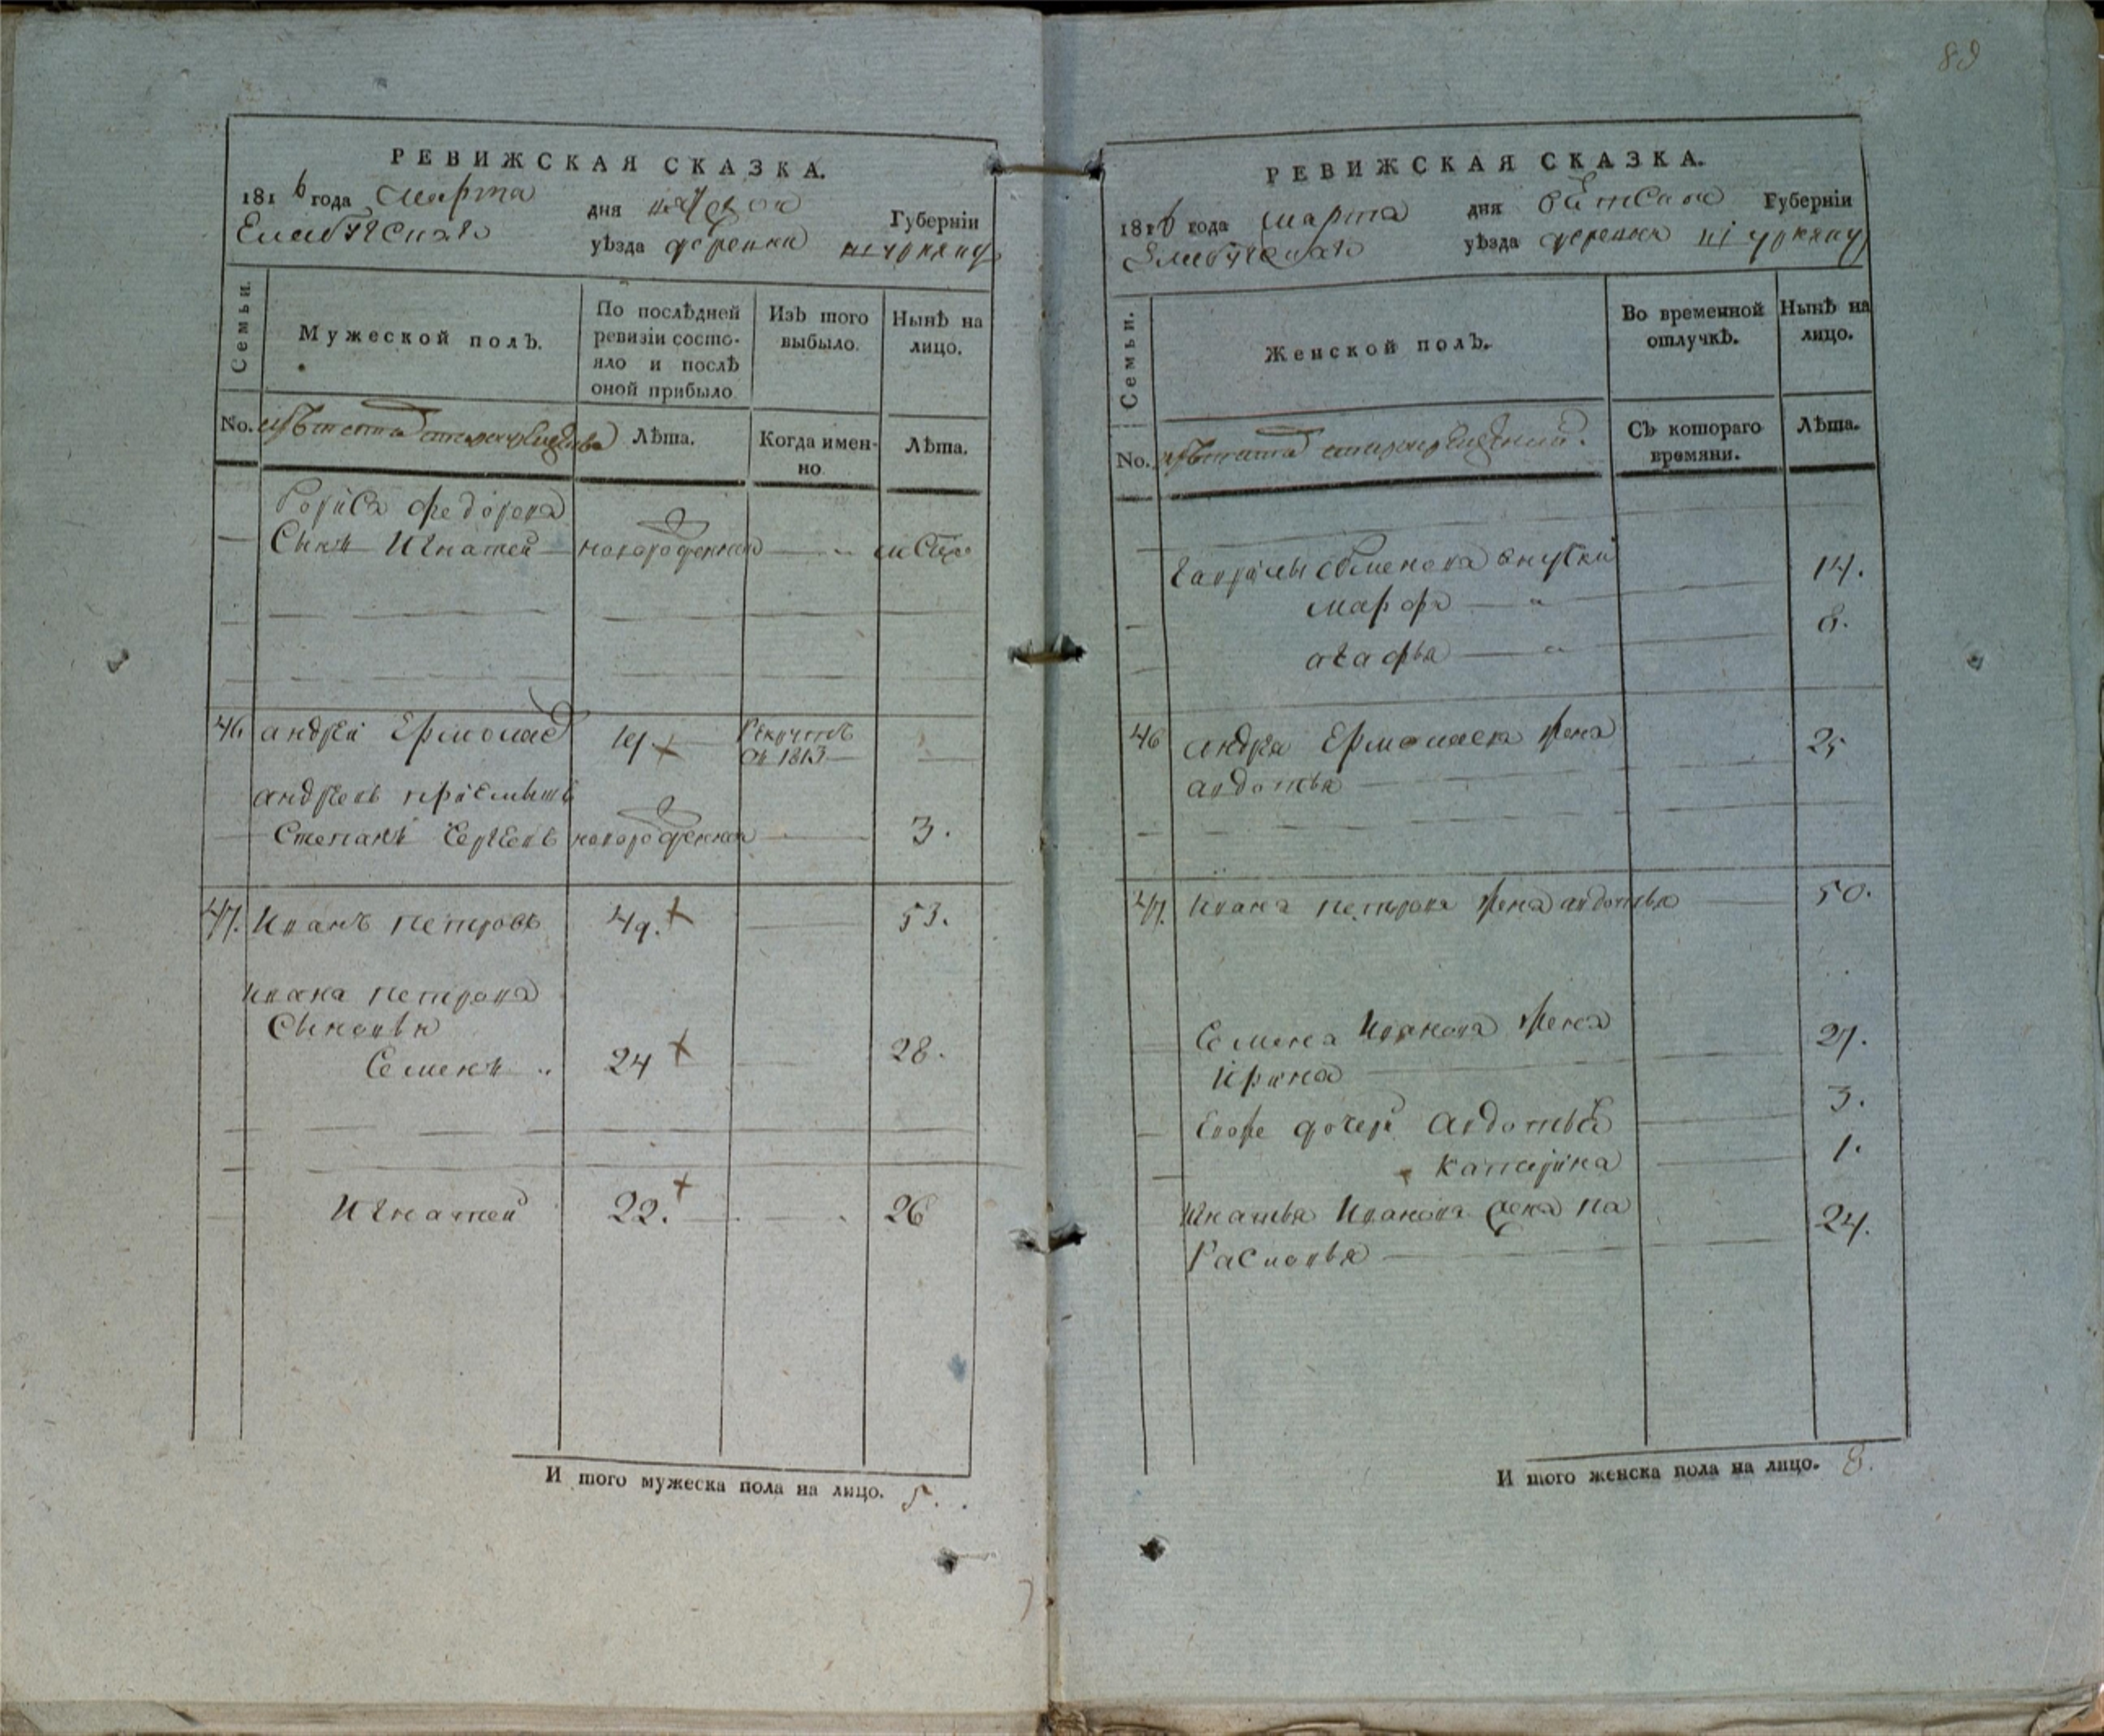 89
РЕВИЖСКАЯ СКАЗКА.
1816 года марта дня Губерніи
Елабужскаго уѣзда деревни
Семьи.
Мужеской полъ.
По послѣдней ревизіи состояло и послѣ оной прибыло
Изъ того выбыло.
Нынѣ на лицо.
No.
Лѣта.
Когда именно
Лѣта.
Бориса Федорова
Сынъ Игнатей новорожденной
46 андреи Ермолаев 19 Рекрутѣ
въ 1813
андреевъ приемышъ
Степанъ Сергеевъ новорожденной 3.
47. Иванъ петровъ 49. 53.
Ивана петрова
Сыновья
Семенъ 24 28.
Игнатей 22. 26
И того мужеска пола на лицо. 5.
РЕВИЖСКАЯ СКАЗКА.
1816 года марта дня Вятской Губерніи
Елабужскаго уѣзда деревни
Семьи.
Женской полъ.
Во временной отлучкѣ.
Нынѣ на лицо.
No.
Съ котораго времяни.
Лѣта.
Гаврилы Семенова внучки
марфа 14.
агафья 8.
46 андрея Ермолаева жена
авдотья 25
47. Ивана петрова жена авдотья 50.
Семена Иванова жена
Ирина 27.
Евоже дочери авдотья 3.
катерина 1.
Игнатья Иванова жена па
расковья 24.
И того женска пола на лицо. 8.